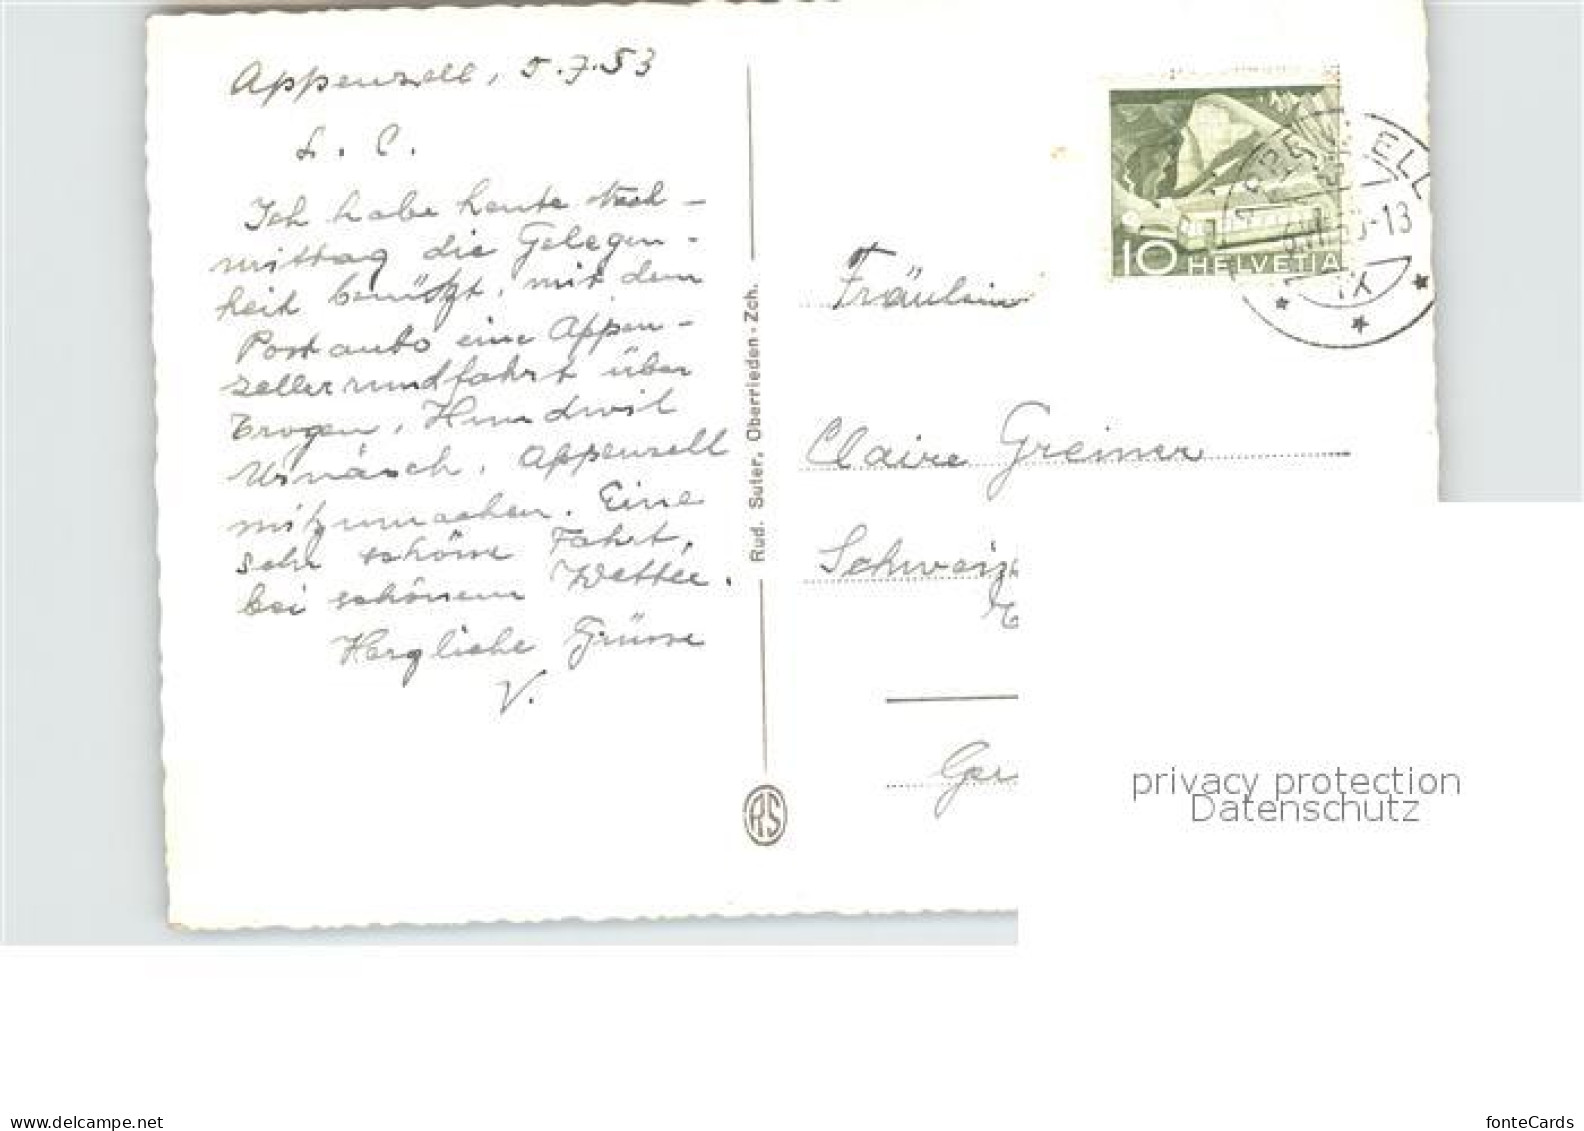 Appenzell, 5.7.53
L. C.
Ich habe heute Nach-
mittag die Gelegen-
heit benützt, mit dem
Postauto eine Appen-
zellerrundfahrt über
Trogen, Hundwil
Urnäsch, Appenzell
mitzumachen. Eine
sehr schöne Fahrt,
bei schönem Wetter.
Herzliche Grüsse
V.
Rud. Suter, Oberrieden - Zch.
RS
10 HELVETIA
APPENZELL
-13
IX
Fräulein
Claire Greiner
Schweiz
Ger
privacy protection
Datenschutz
www.delcampe.net
fonteCards